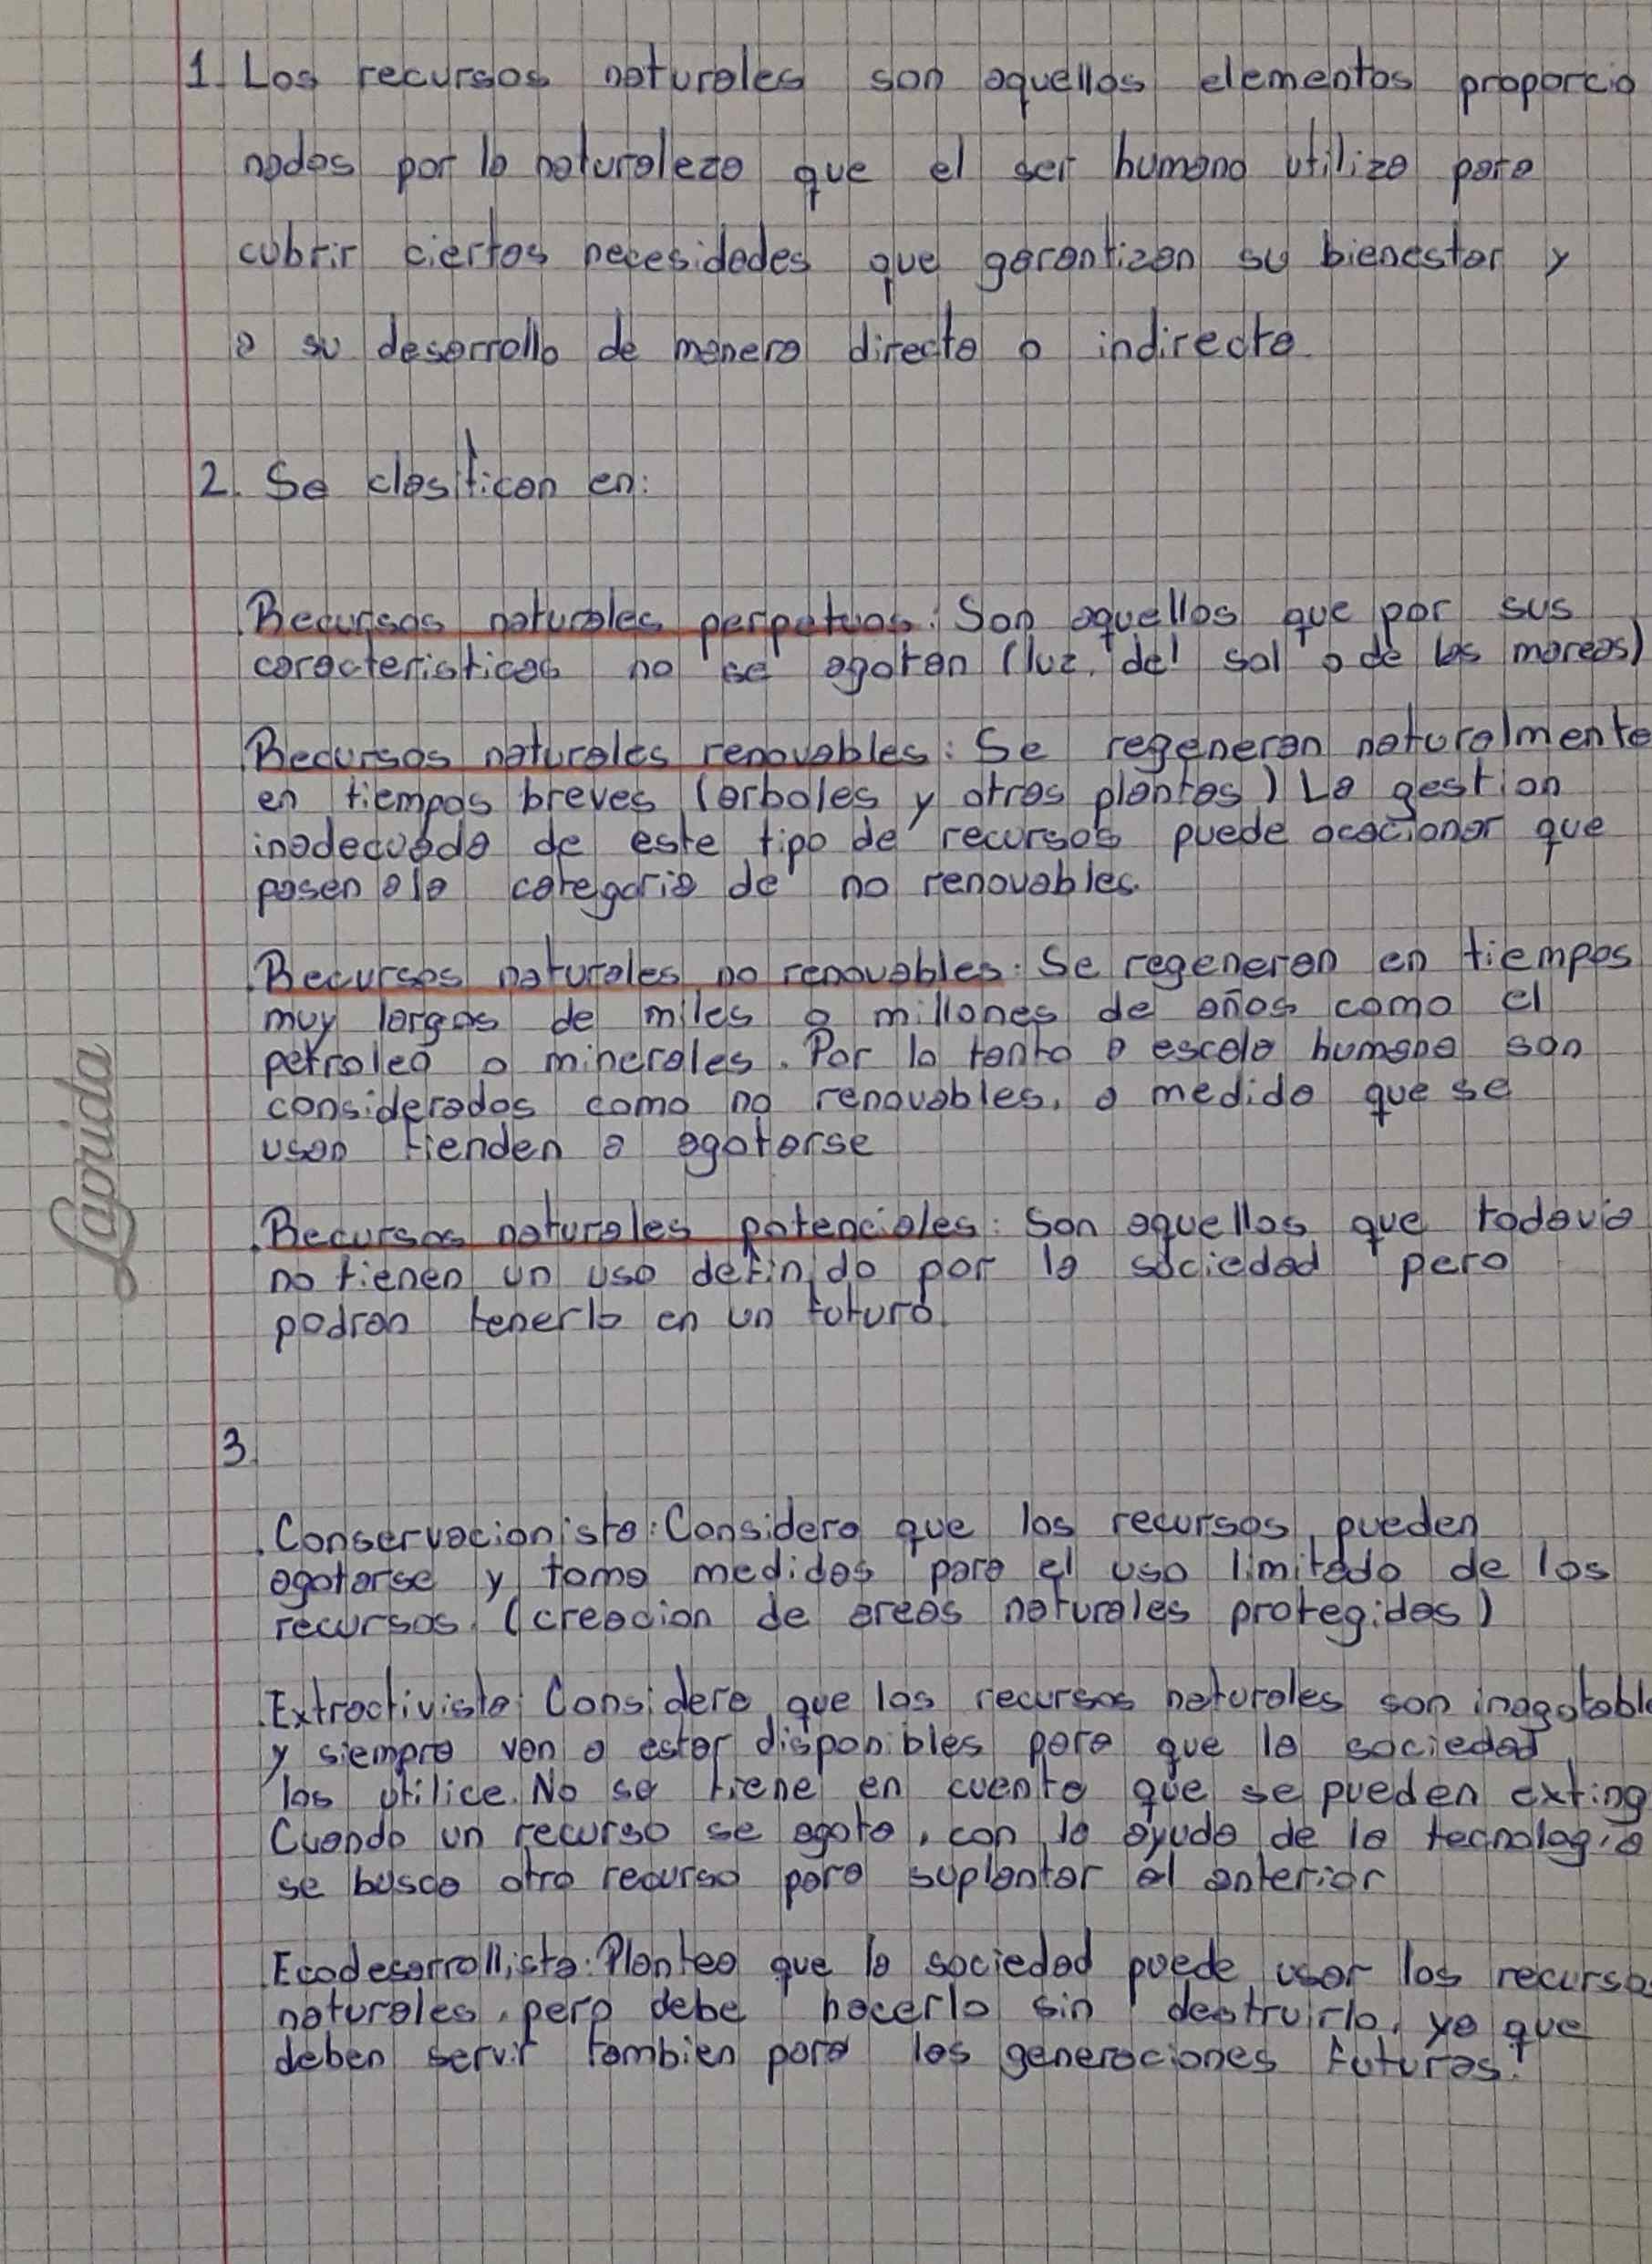 1. Los recursos naturales son aquellos elementos proporcio
nados por la naturaleza que el ser humano utiliza para
cubrir ciertas necesidades que garantizan su bienestar y
a su desarrollo de manera directa o indirecta.
2. Se clasifican en:
. Recursos naturales perpetuos: Son aquellos que por sus
caracteristicas no se agotan (luz del sol o de las mareas)
Recursos naturales renovables: Se regeneran naturalmente
en tiempos breves (arboles y otras plantas) La gestion
inadecuada de este tipo de recursos puede ocacionar que
pasen a la categoria de no renovables.
. Recursos naturales no renovables: Se regeneran en tiempos
muy largos de miles o millones de años como el
petroleo o minerales. Por lo tanto a escala humana son
considerados como no renovables, a medida que se
usan tienden a agotarse
. Recursos naturales potenciales: Son aquellos que todavia
no tienen un uso definido por la sociedad pero
podran tenerlo en un futuro.
3.
. Conservacionista: Considera que los recursos pueden
agotarse y toma medidas para el uso limitado de los
recursos. (creacion de areas naturales protegidas)
. Extractivista: Considera que los recursos naturales son inagotable
y siempre van a estar disponibles para que la sociedad
los utilice. No se tiene en cuenta que se pueden exting
Cuando un recurso se agota, con la ayuda de la tecnologia
se busca otro recurso para suplantar al anterior
. Ecodesarrollista: Plantea que la sociedad puede usar los recursos
naturales, pero debe hacerlo sin destruirlo, ya que
deben servir tambien para las generaciones futuras.
Laprida